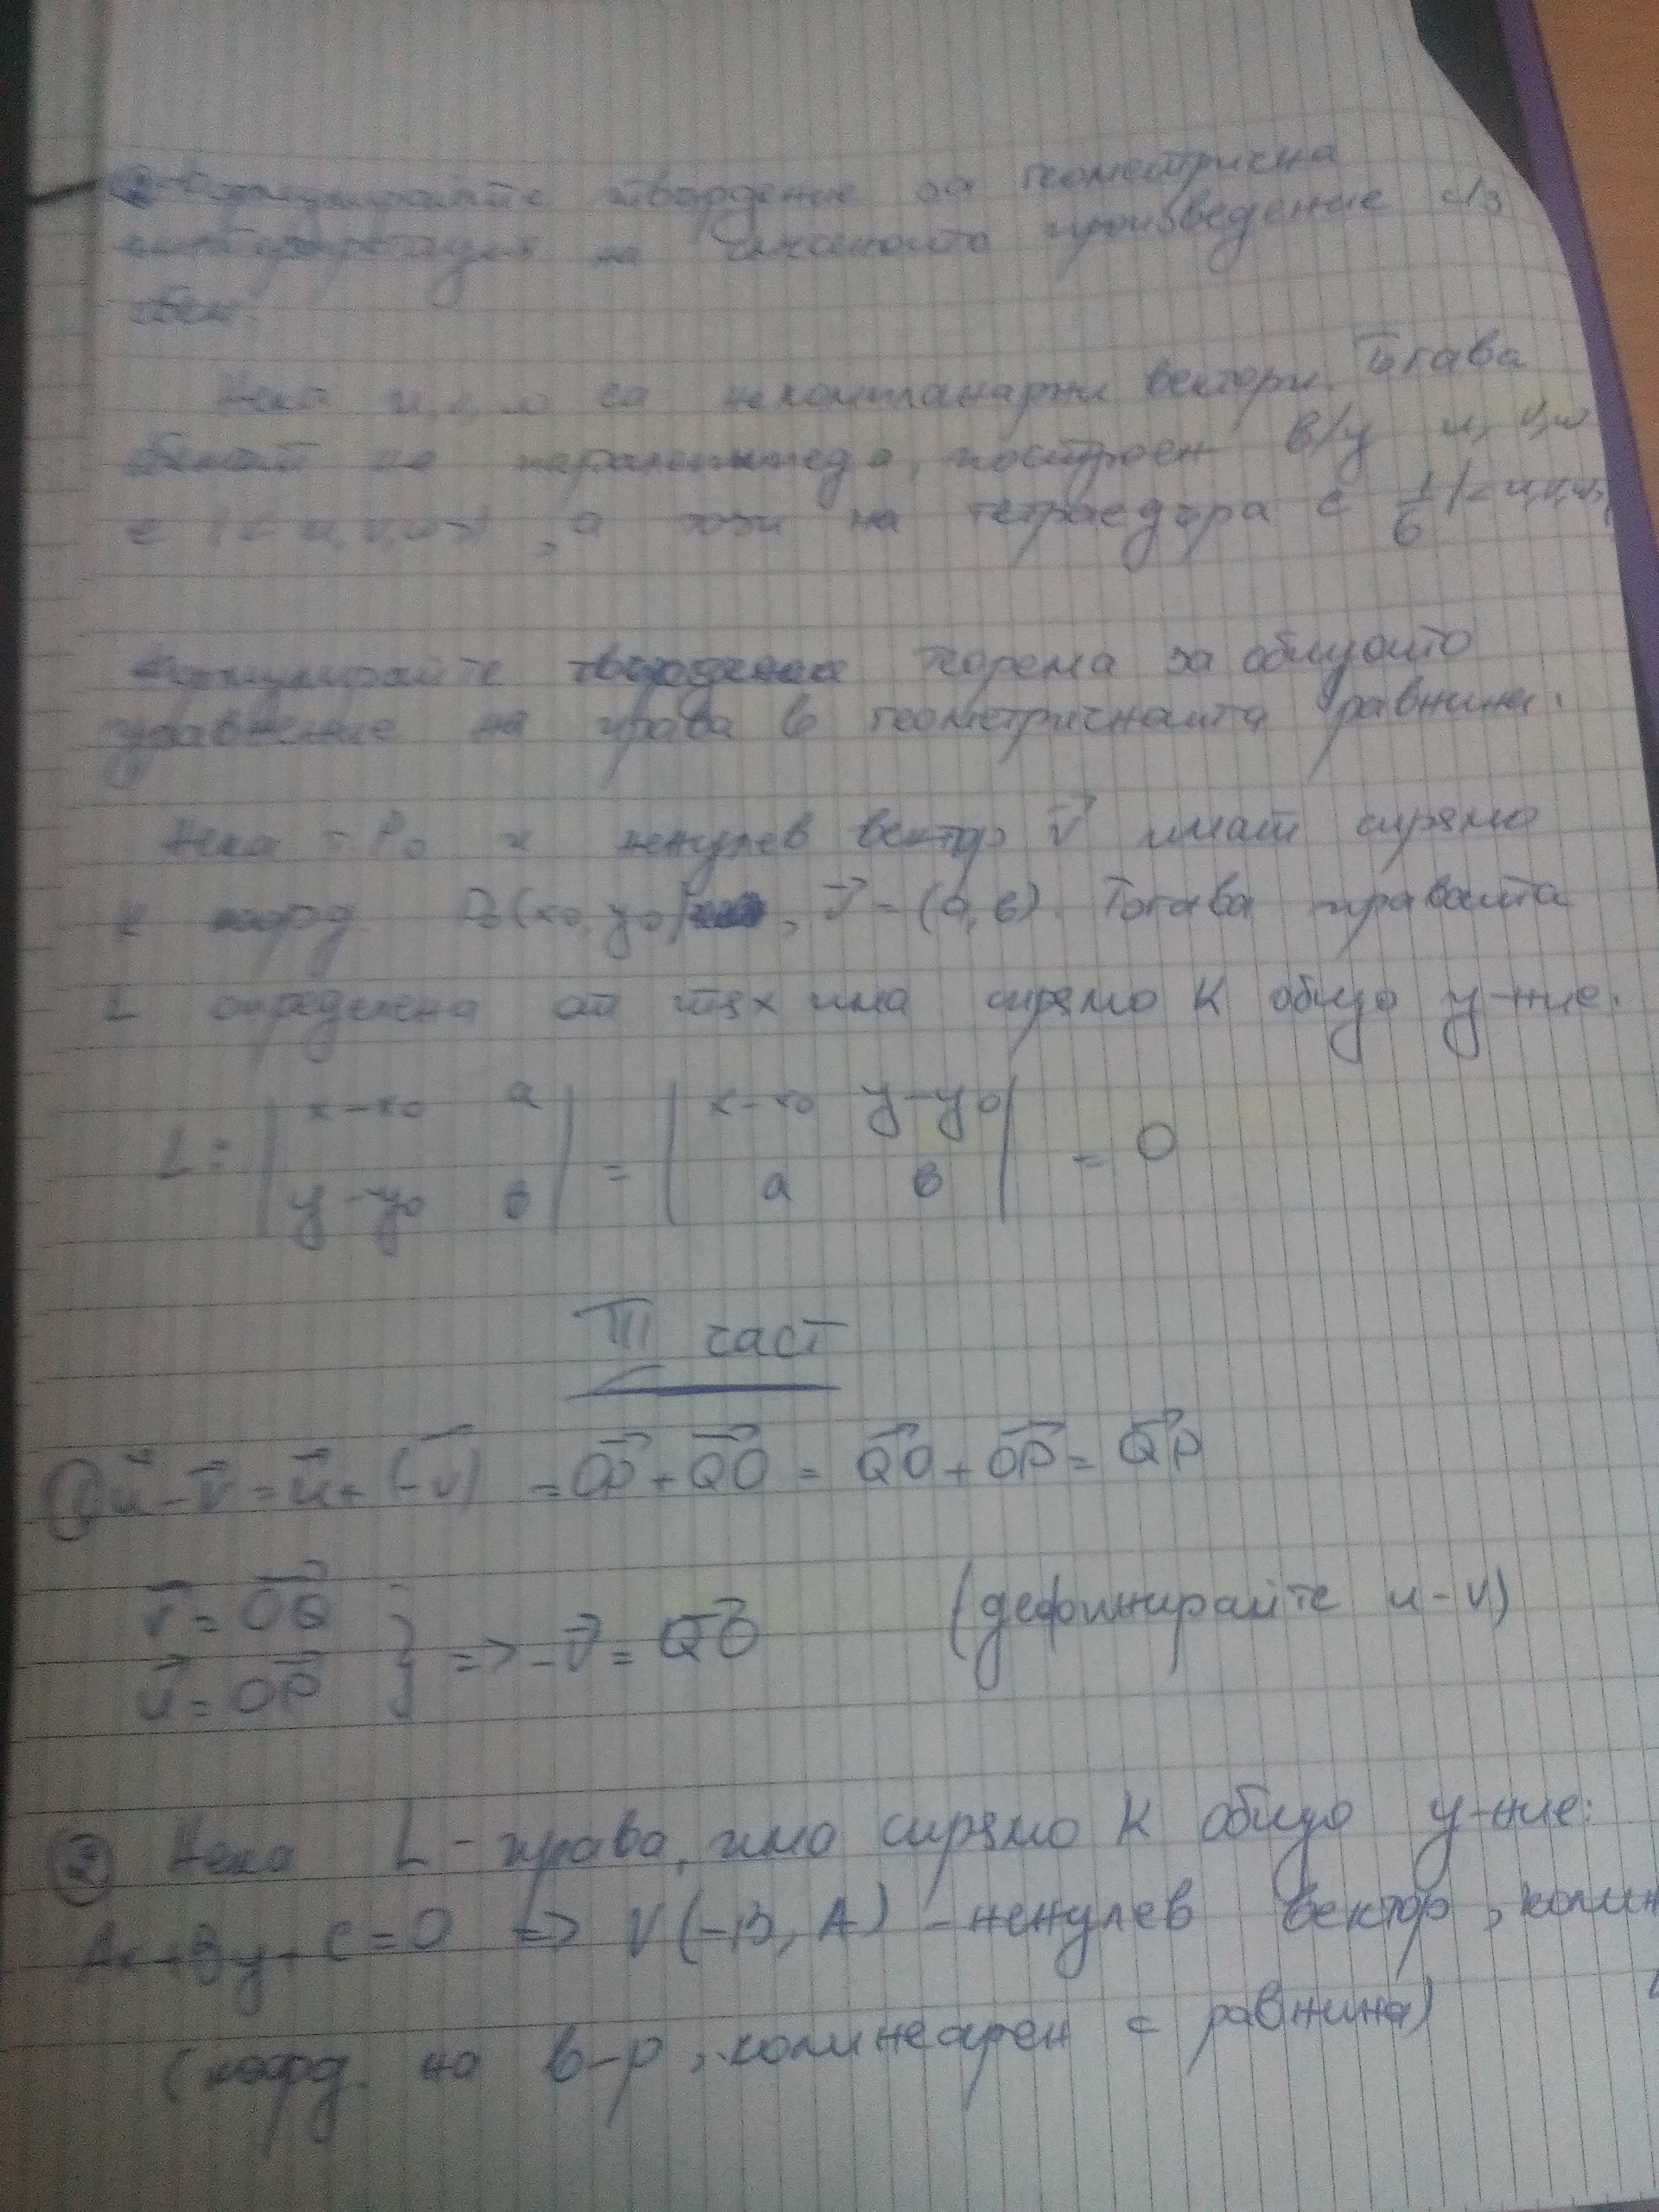 Формулирайте твърдение за геометрична
интерпретация на смесеното произведение с/з
обем.
Нека u, v, w са некомпланарни вектори. Тогава
обемът на паралелепипеда, построен в/у u, v, w
е |< u, v, w >|, а този на тетраедъра с 1/6 |< u, v, w
Формулирайте твърдение теорема за общото
уравнение на права в геометричната равнина.
Нека т. P₀ и ненулев вектор v⃗ имат спрямо
K коорд. P₀(x₀, y₀), v⃗ = (a, b). Тогава правата
L определена от тях има спрямо K общо у-ние.
L: | x-x₀ a | = | x-x₀ y-y₀ | = 0
| y-y₀ b | | a b |
III част
① u⃗ - v⃗ = u⃗ + (-v⃗) = OP⃗ + QO⃗ = QO⃗ + OP⃗ = QP⃗
v⃗ = OQ⃗ } => -v⃗ = QO⃗ (дефинирайте u-v)
u⃗ = OP⃗
② Нека L - права, има спрямо K общо у-ние:
Ax+By+C=0 => v(-B, A) - ненулев вектор, колин
(коорд. на в-р, колинеарен с равнина)